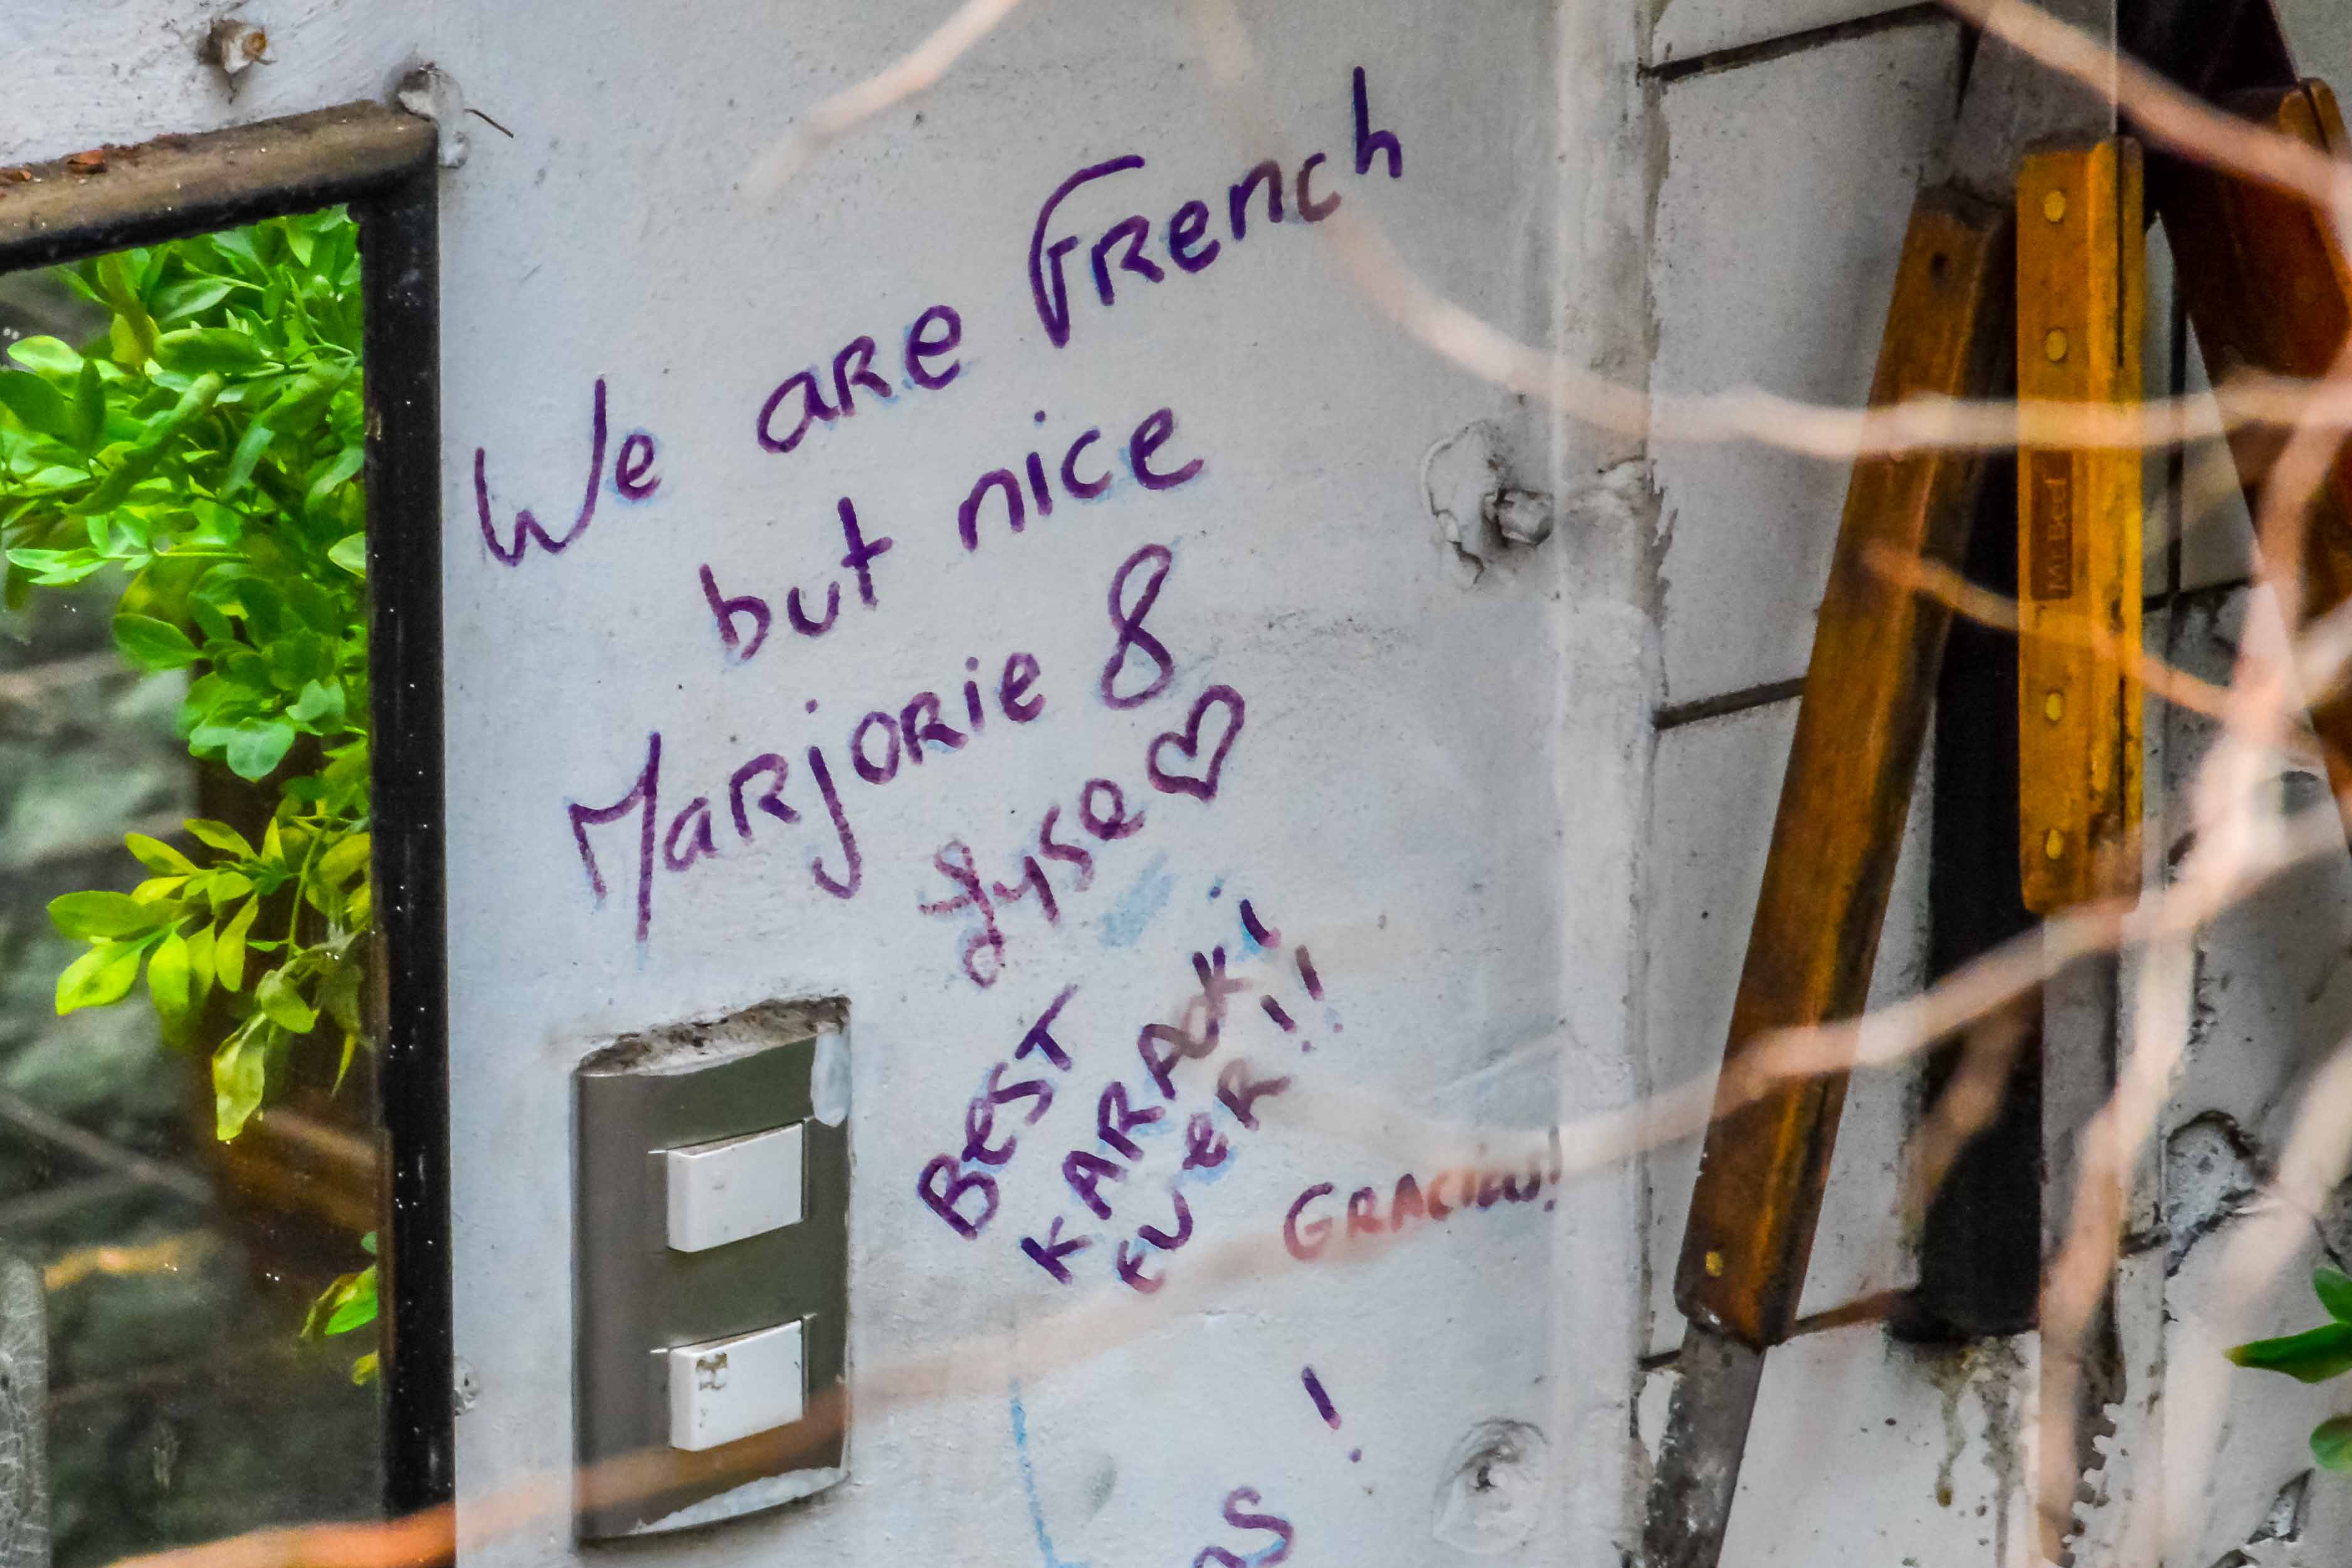 We are French
but nice
Marjorie &
Lyse ♡
BEST
KARAOKI
EVER!!!
GRACIAS!
!
as